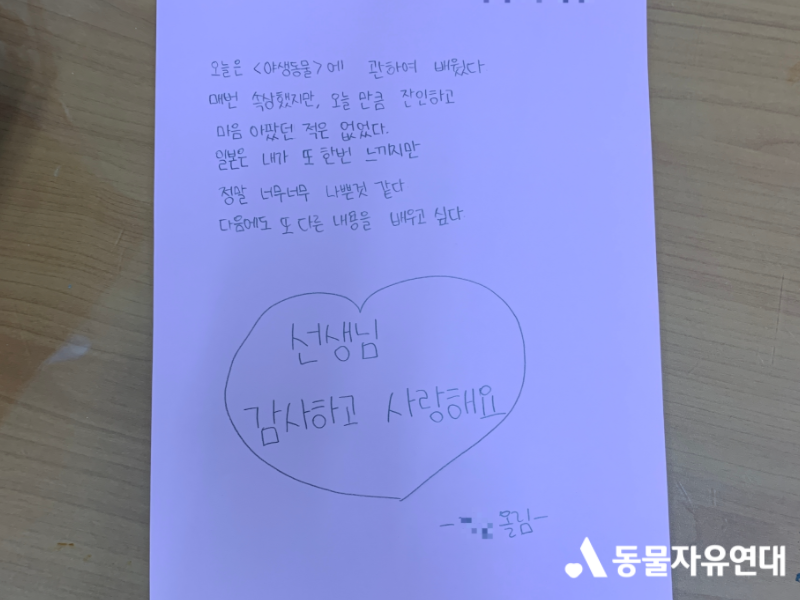 오늘은 <야생동물>에 관하여 배웠다
매번 속상했지만, 오늘 만큼 잔인하고
마음 아팠던 적은 없었다.
일본은 내가 또 한번 느끼지만
정말 너무너무 나쁜것 같다
다음에도 또 다른 내용을 배우고 싶다.
선생님
감사하고 사랑해요
올림-
동물자유연대